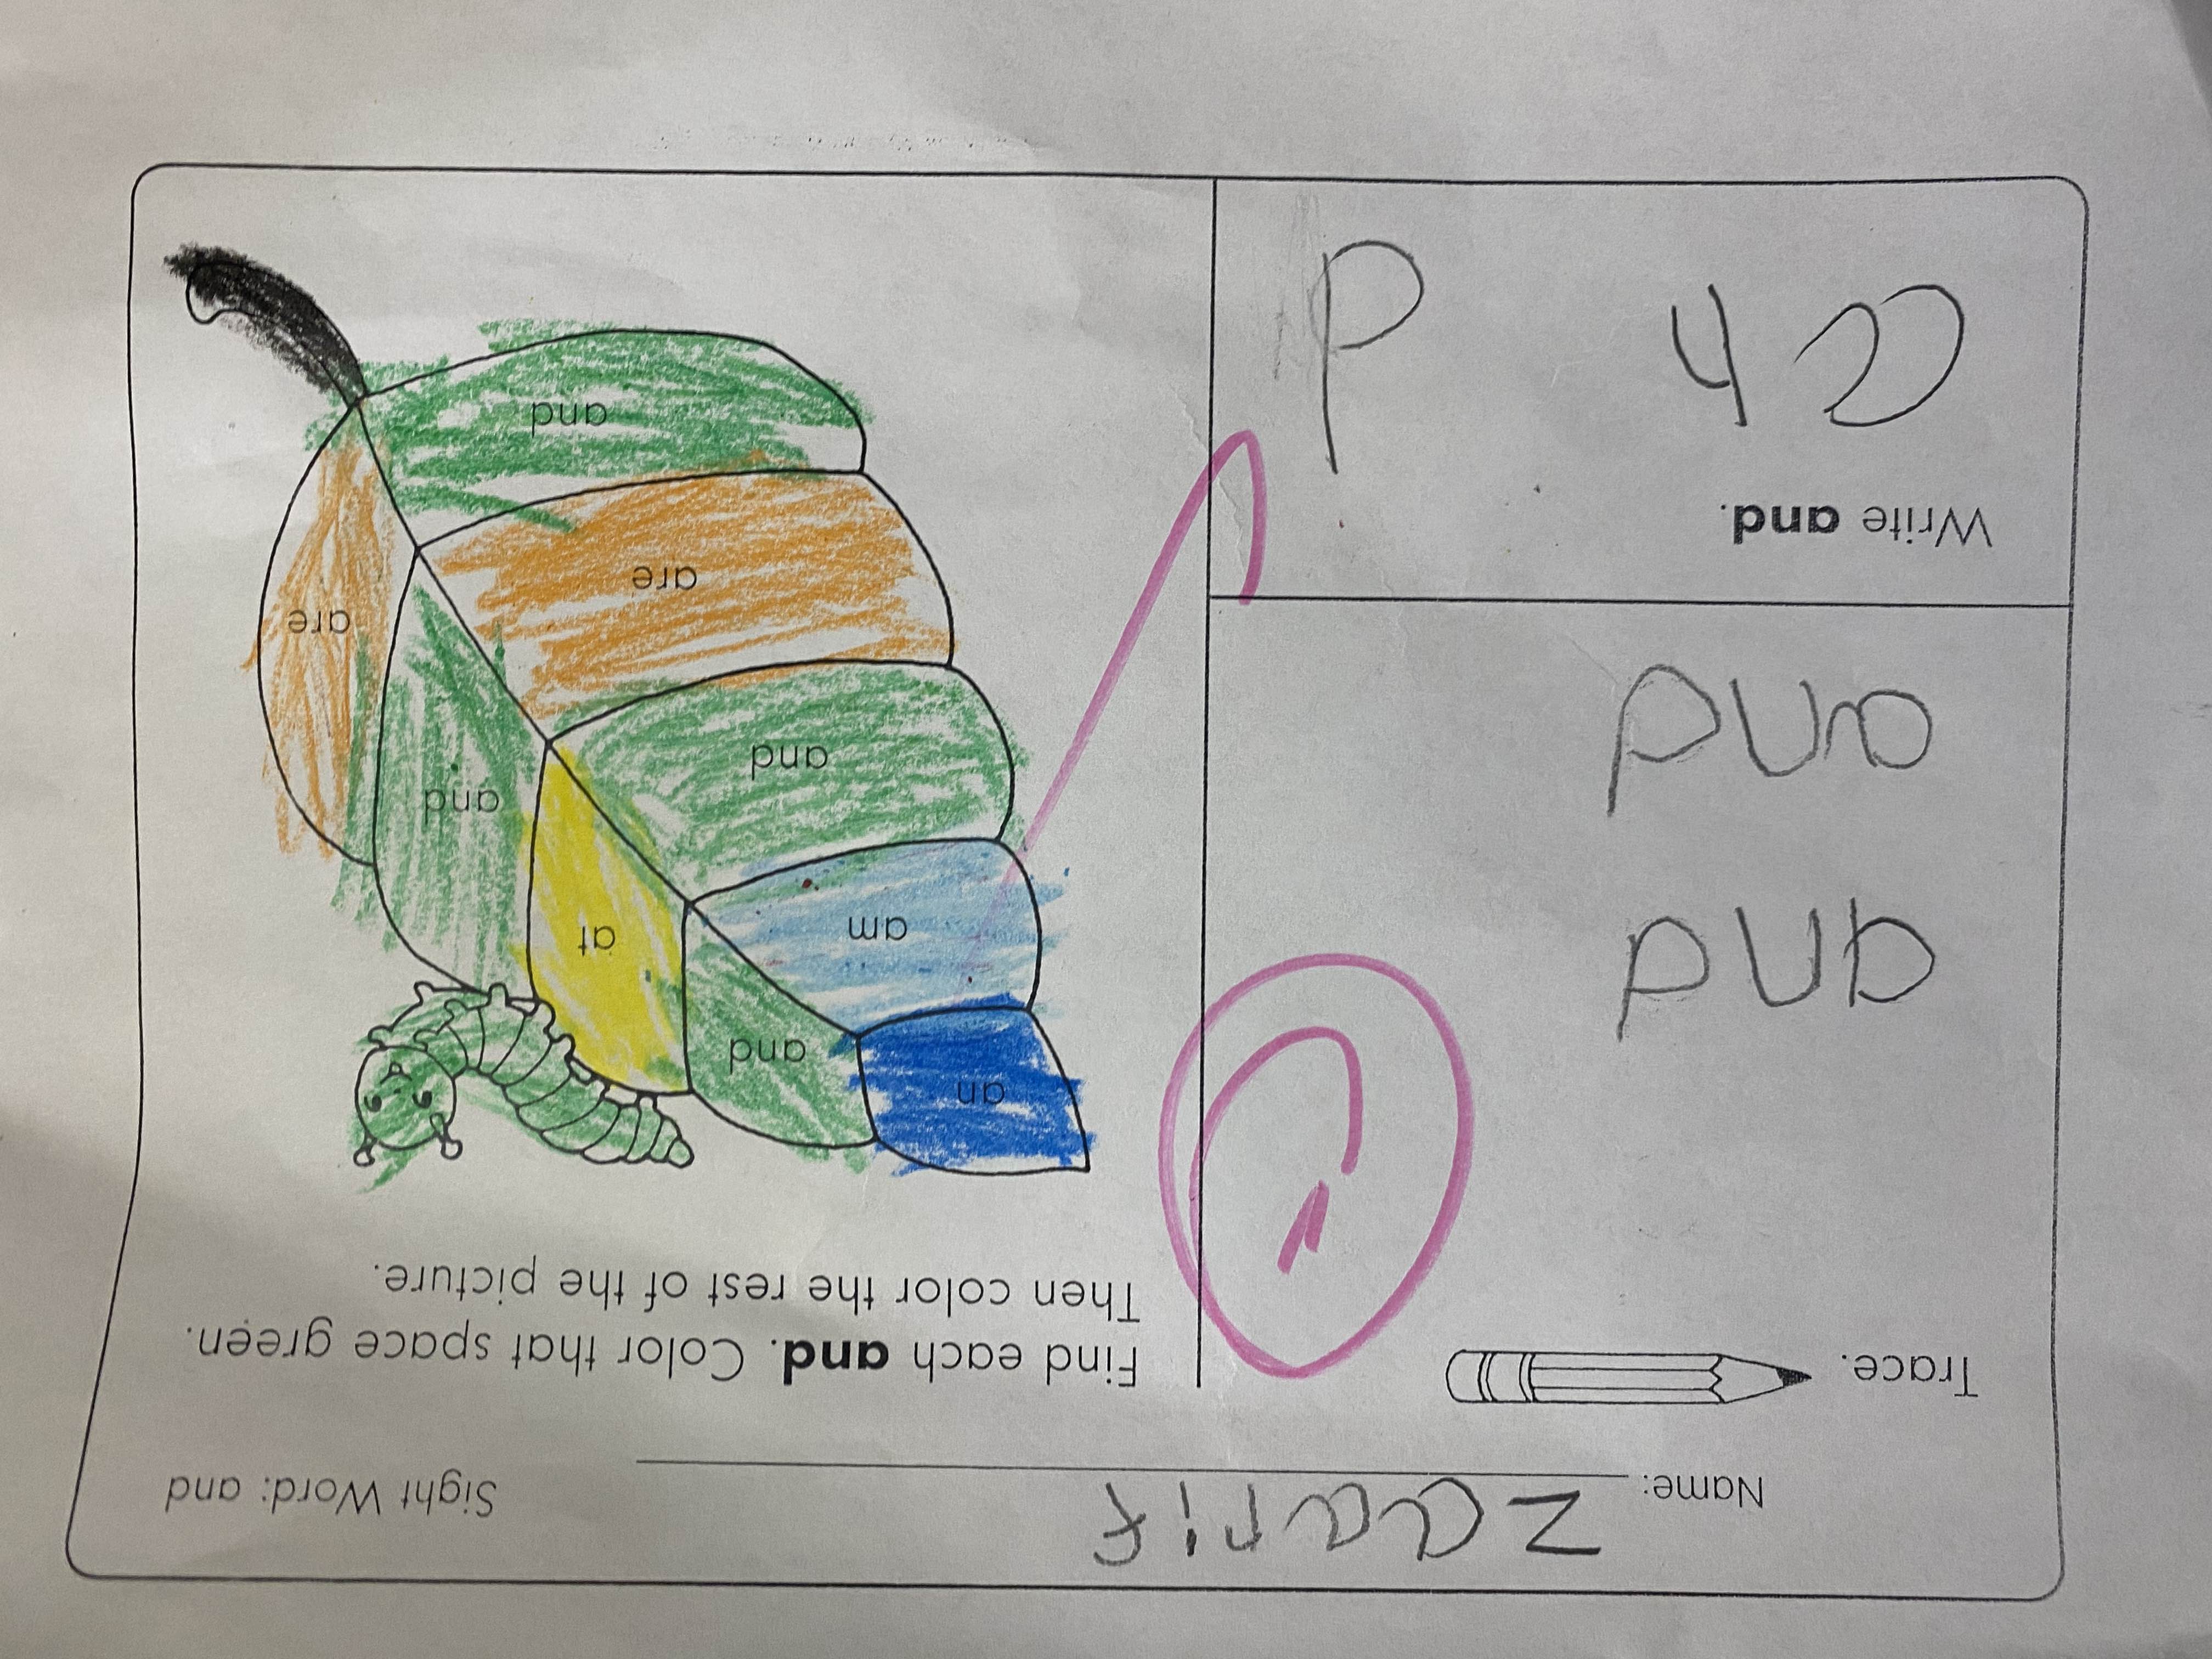 Name: zaarif
Sight Word: and
Trace.
and
and
Write and.
an d
Find each and. Color that space green.
Then color the rest of the picture.
an
and
am
at
and
and
are
are
and